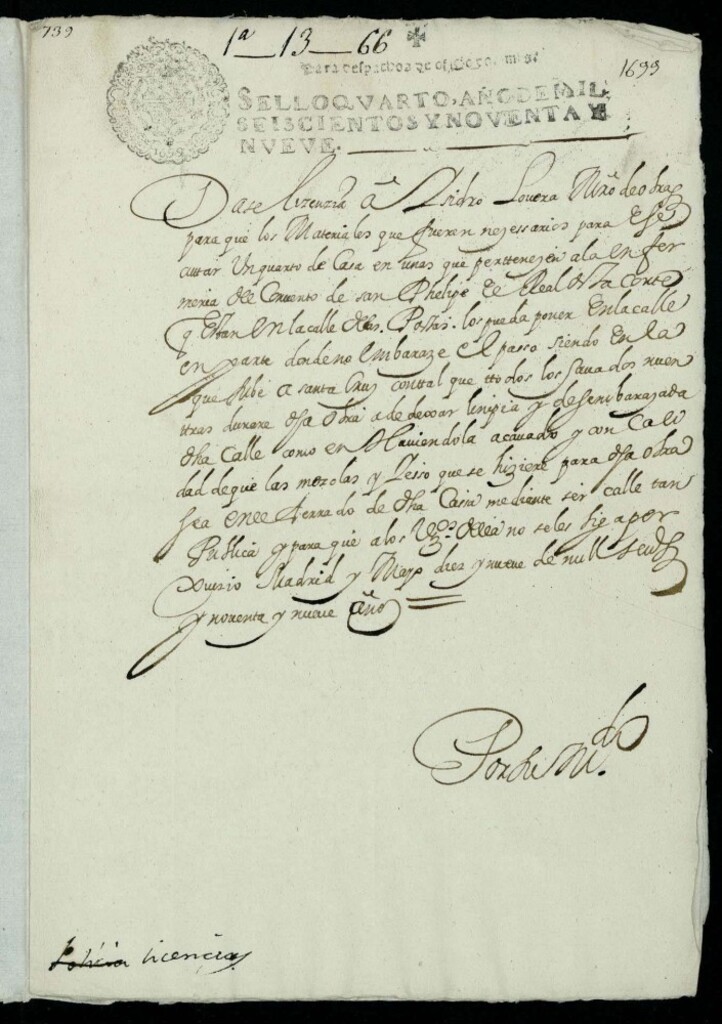 739
1ª_13_66
1699
Para despachos de oficio dos mrs.
SELLOQVARTO, AÑO DE MIL
SEISCIENTOS Y NOVENTA Y
NVEVE.
Dase lizenzia a Ysidro Lovera Mro de obras
para que los Materiales que fueren nezessarios para Ese
cutar Un quarto de Casa en Unas que perttenezen a la enfer
meria del Convento de san Phelipe el Real desta Corte
q estan en la calle de las Postas. los pueda poner en la calle
en parte donde no embaraze el passo siendo en la
que sube a santa Cruz conttal que ttodos los savados mien
ttras durare dha obra a de dexar limpia y desembarazada
dha Calle como en haviendola acavado y con Cali
dad de que las mezclas y Yesso que se hiziere para dha obra
sea en el Zerrado de dha Cassa mediante ser calle tan
Publica y para que a los Vos. della no se les siga per
xuizio Madrid y Mayo diez y nueve de mill seis
y noventa y nueve años
Por de Md.
licencias